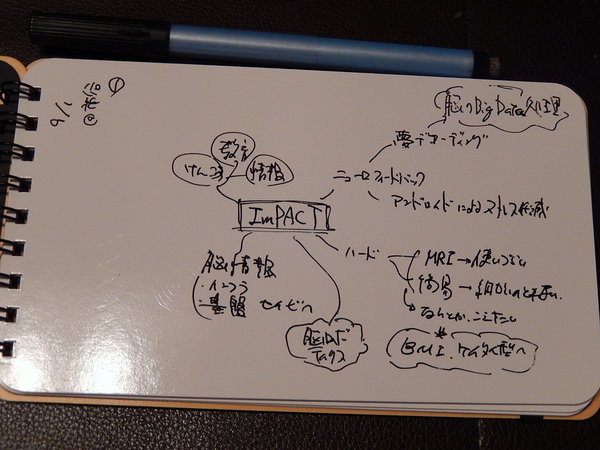 ①
脳のBig Data処理
夢デコーディング
教育
けんこう
情報
ニューロフィードバック
アンドロイドによるストレス低減
ImPACT
ハード
脳情報
・インフラ
・基盤 セイビへ
MRI→使いづらい
簡易→細かいのとれない
なんとかこえたい
脳ロボ
Tags
BMI. ケイタイ型へ